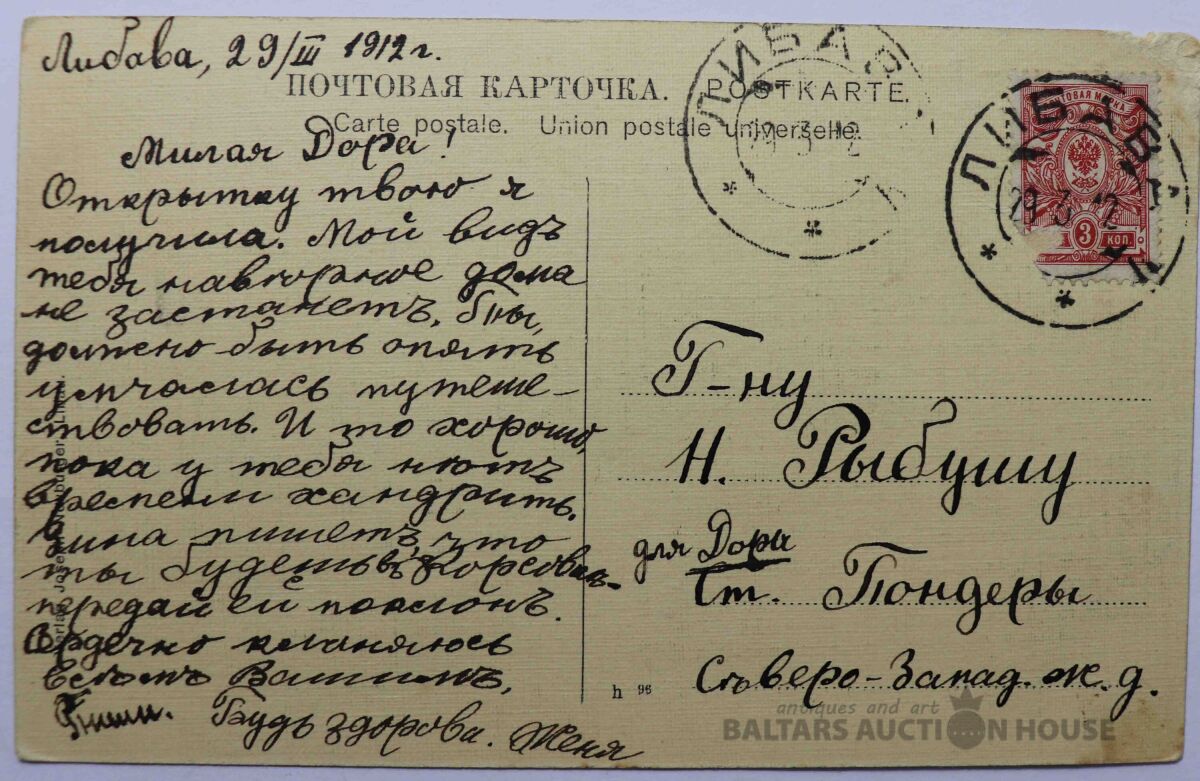 Либава, 29/III 1912 г.
ПОЧТОВАЯ КАРТОЧКА. POSTKARTE.
Carte postale. Union postale universelle.
Милая Дора!
Открытку твою я
получила. Мой видъ
тебя навѣрное дома
не застанетъ. Ты,
должно быть опять
умчалась путеше-
ствовать. И то хорошо,
пока у тебя нѣтъ
времени хандрить.
пишетъ, что
ты будешь въ
передай ей поклонъ.
Сердечно кланяюсь
Всѣмъ Вашимъ.
Пиши. Будь здорова. Женя
ЛИБАВА
29 3 12
ЛИБАВА
29 3 12
ПОЧТОВАЯ МАРКА
3 КОП.
Г-ну
Н. Рыбушу
для Дора
Ст. Пондеры
Сѣверо-Запад. ж. д.
h 96
antiques and art
BALTARS AUCTION HOUSE